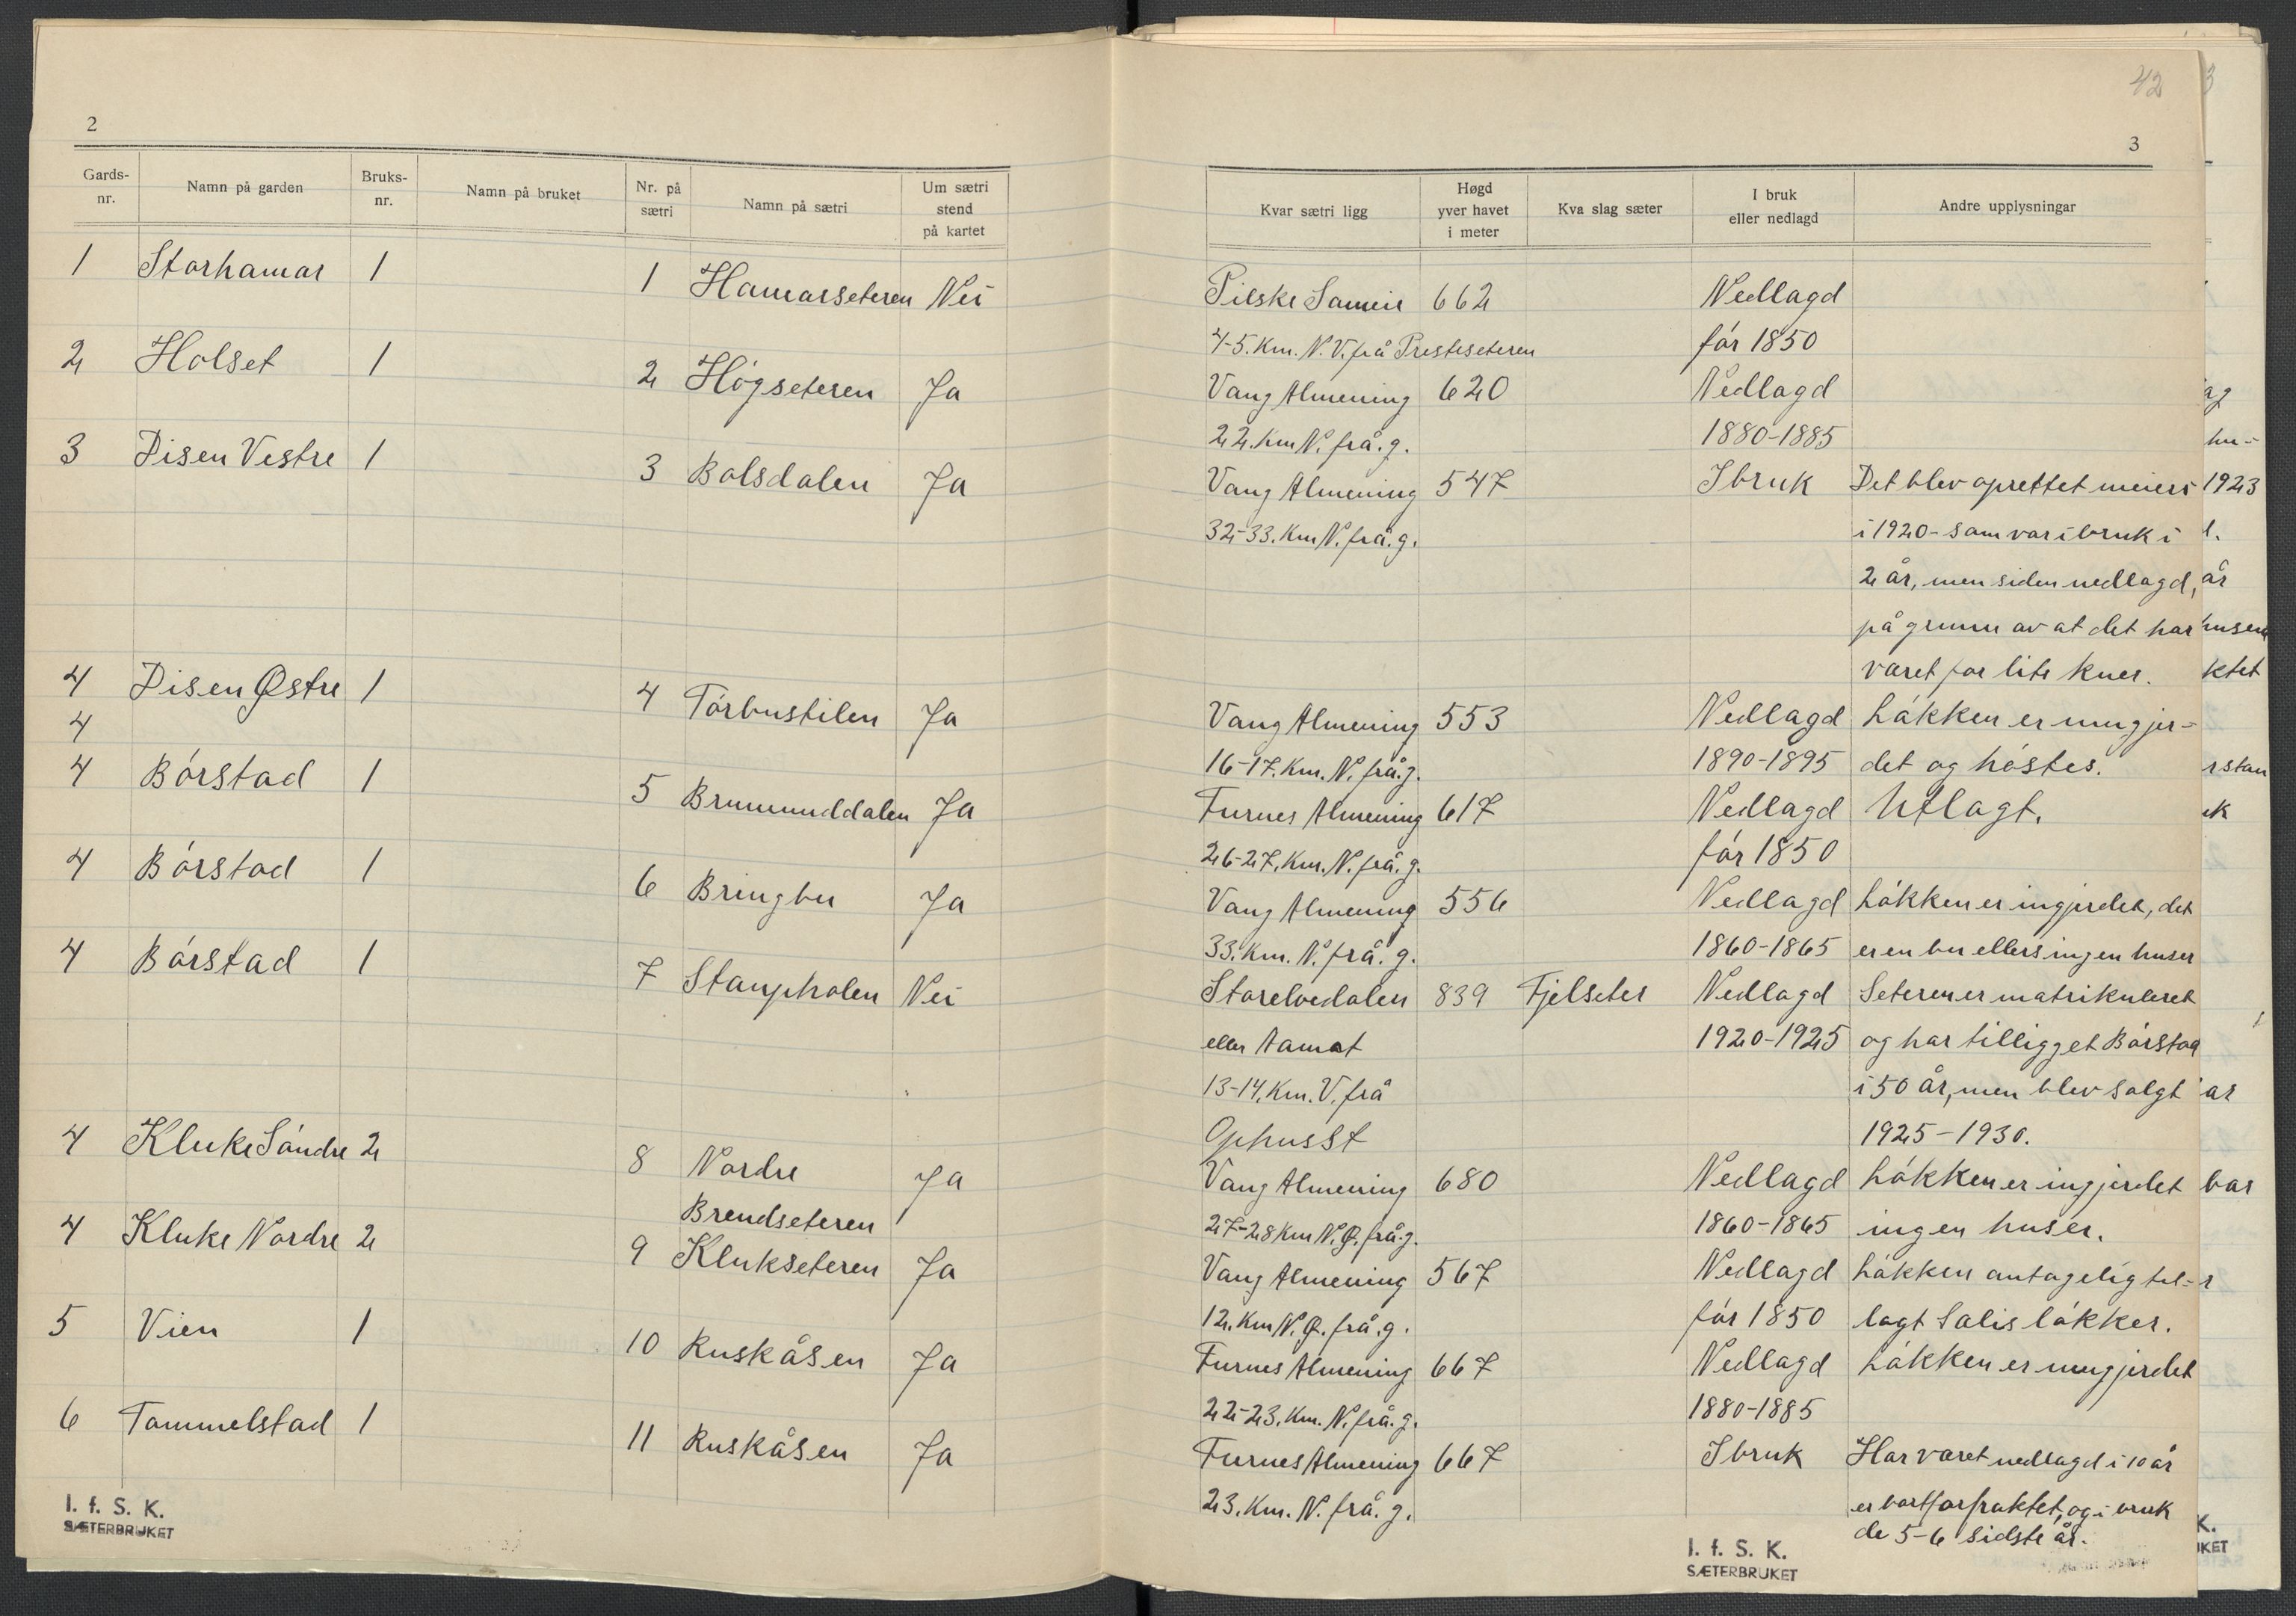 2
Gards-nr. Namn på garden Bruks-nr. Namn på bruket Nr. på sætri Namn på sætri Um sætri stend på kartet
1 Storhamar 1 1 Hamarseteren Nei
2 Holset 1 2 Högseteren Ja
3 Disen Vestre 1 3 Bolsdalen Ja
4 Disen Østre 1 4 Törbustilen Ja
4
4 Börstad 1 5 Brummunddalen Ja
4 Börstad 1 6 Bringbu Ja
4 Börstad 1 7 Staupholen Nei
4 Kluke Söndre 2 8 Nordre Ja
Brendseteren
4 Kluke Nordre 2 9 Klukseteren Ja
5 Vien 1 10 Ruskåsen Ja
6 Tommelstad 1 11 Ruskåsen Ja
I. f. S. K.
SÆTERBRUKET
42
3
Kvar sætri ligg Høgd yver havet i meter Kva slag sæter I bruk eller nedlagd Andre upplysningar
Pilske Sameie 662 Nedlagd
4-5. Km. N.V. frå Presteseteren för 1850
Vang Almening 620 Nedlagd
22. Km N. frå. g. 1880-1885
Vang Almening 547 I bruk Det blev oprettet meieri
32-33. Km N. frå. g. i 1920- som var i bruk i
2 år, men siden nedlagd,
på grunn av at det har
været for lite kuer.
Vang Almening 553 Nedlagd Lökken er inngjer-
16-17. Km. N. frå. g. 1890-1895 det og höstes.
Furnes Almening 617 Nedlagd Utlagt.
26-27. Km. N. frå. g. för 1850
Vang Almening 556 Nedlagd Lökken er ingjerdet, det
33. Km. N. frå. g. 1860-1865 er en bu ellers ingen huser
Storelvedalen 839 Fjelseter Nedlagd Seteren er matrikuleret
eller Aamot 1920-1925 og har tilligget Börstad
13-14. Km. V. frå i 50 år, men blev solgt
Ophus St 1925-1930.
Vang Almening 680 Nedlagd Lökken er ingjerdet
27-28 Km N.Ø. frå. g. 1860-1865 ingen huser.
Vang Almening 567 Nedlagd Lökken antagelig til-
12. Km N.Ø. frå. g. för 1850 lagt Salislökker.
Furnes Almening 667 Nedlagd Lökken er inngjerdet
22-23. Km. N. frå. g. 1880-1885
Furnes Almening 667 I bruk Har været nedlagd i 10 år
23. Km. N. frå. g. er bortforpaktet, og i bruk
de 5-6 sidste år.
I. f. S. K.
SÆTERBRUKET